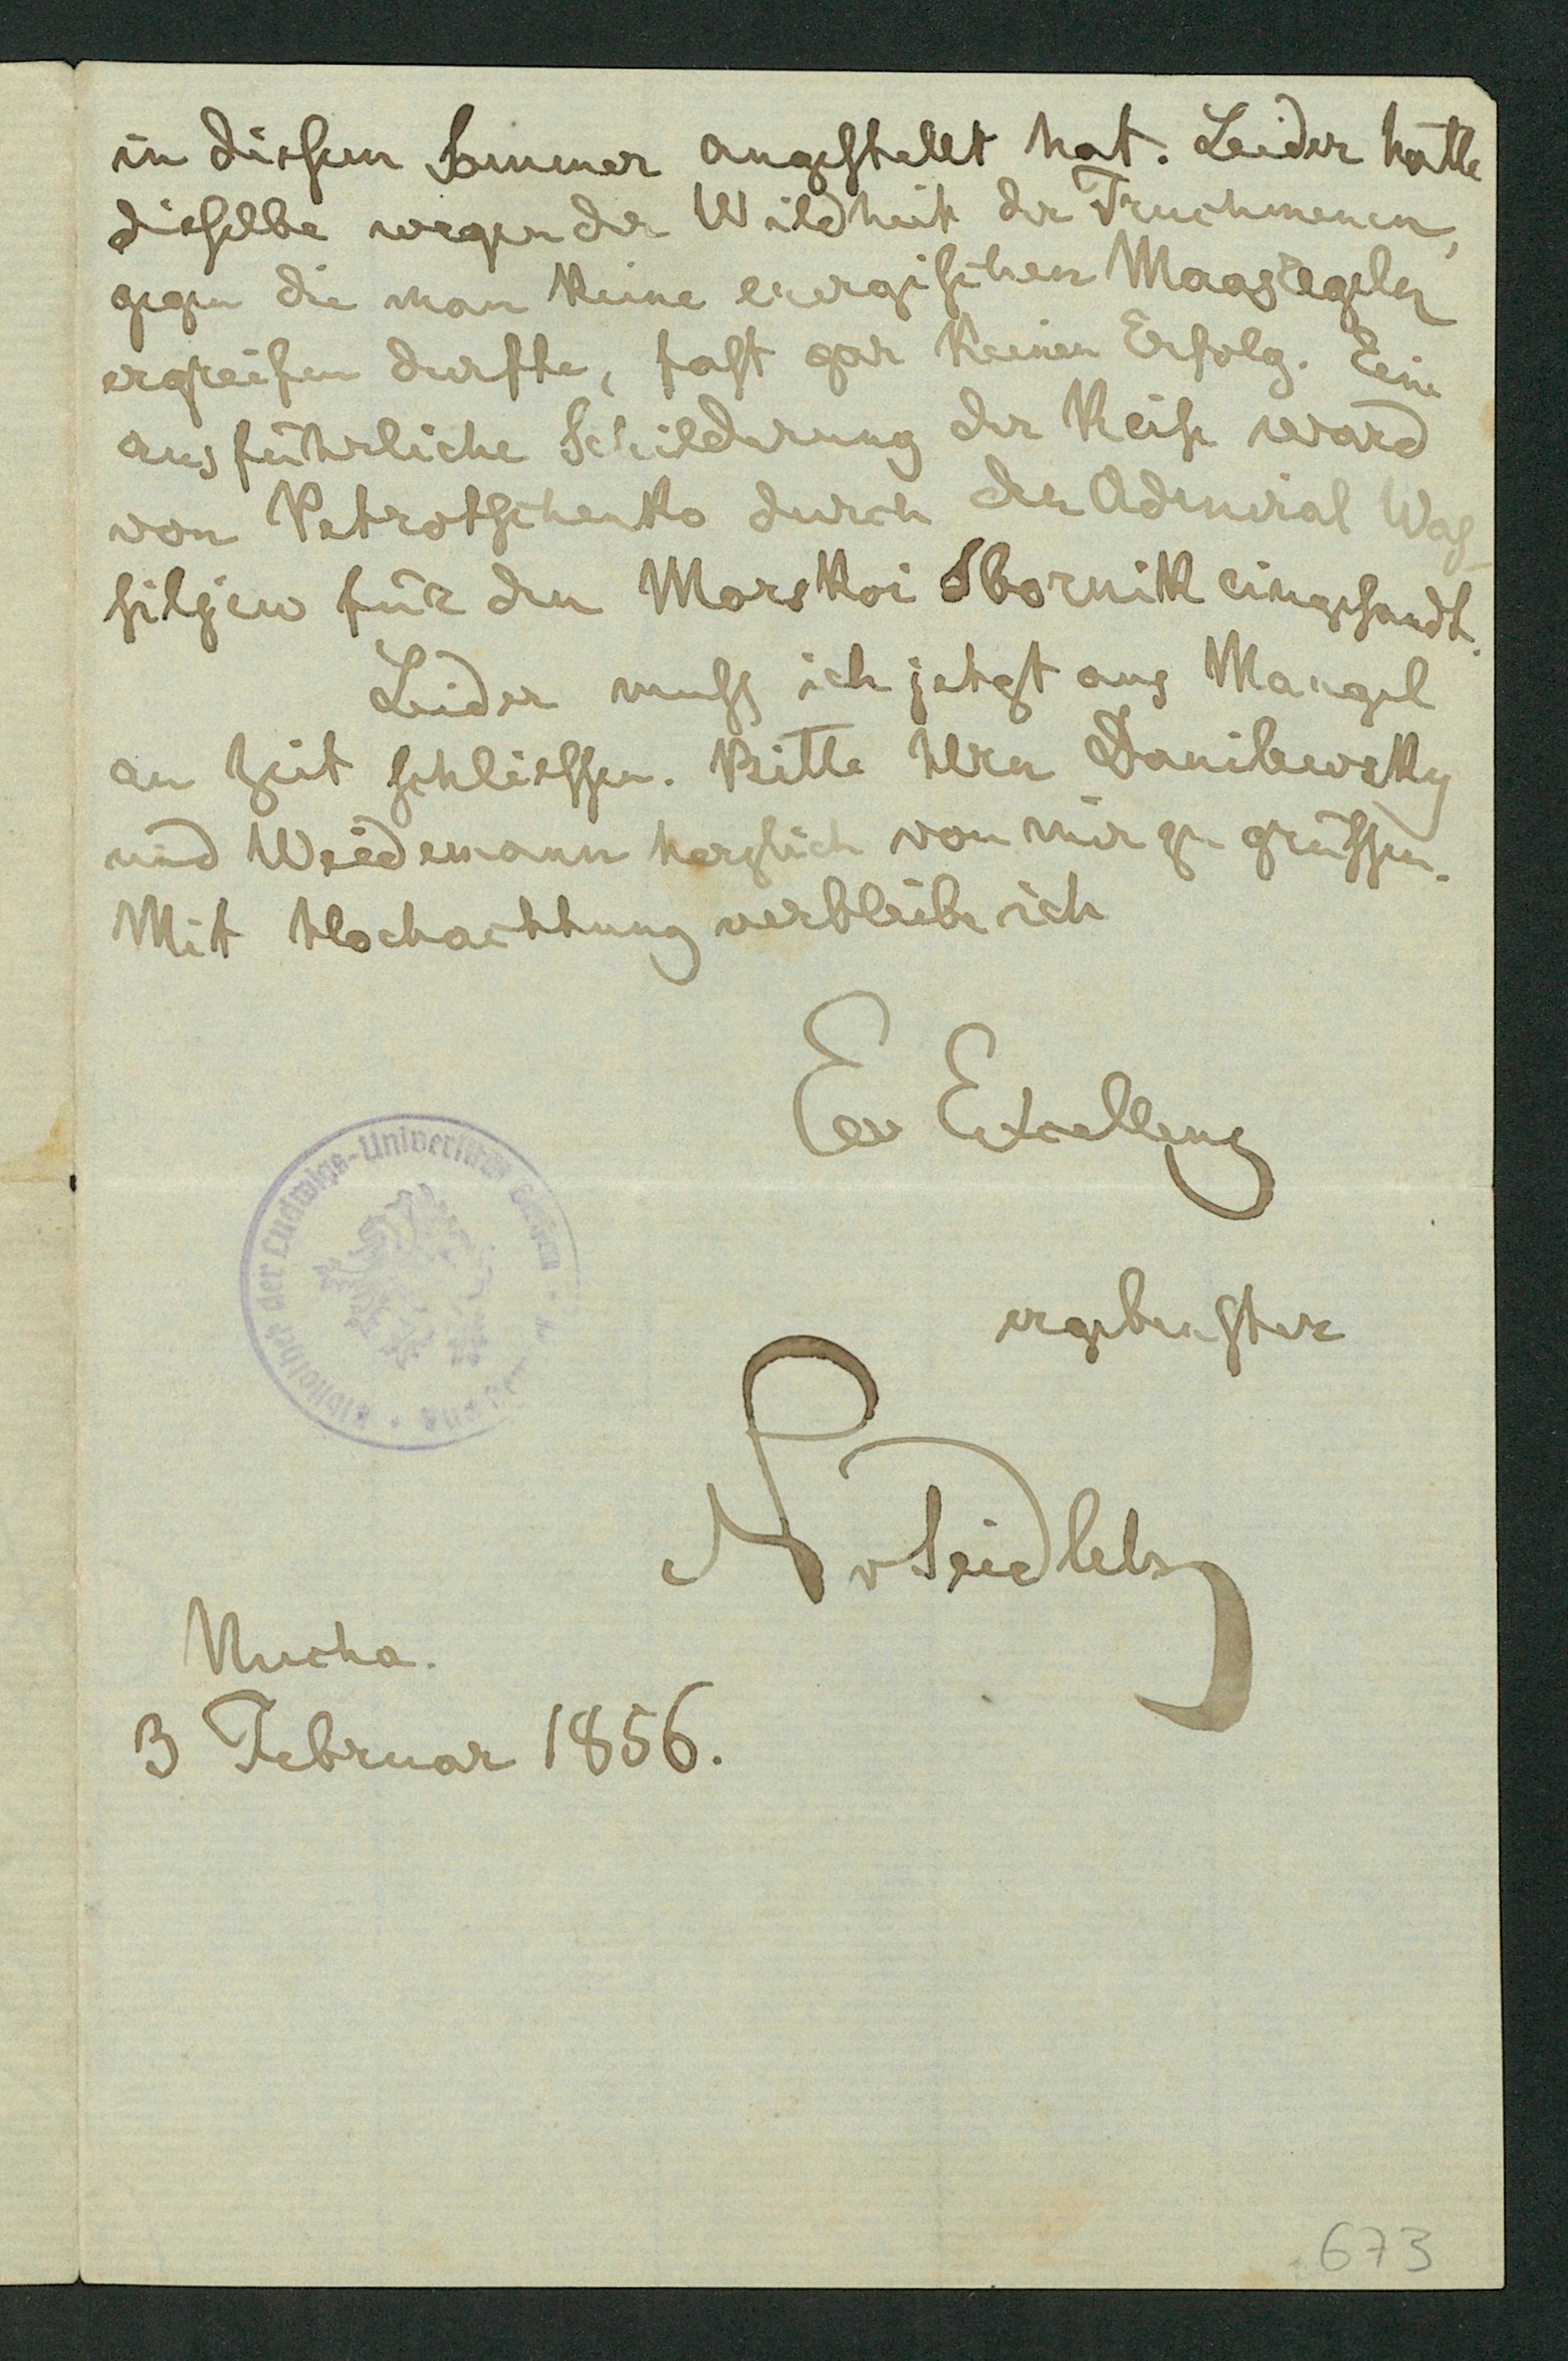 in diesem Sommer angestellt hat. Leider hatte
dieselbe wegen der Wildheit der Truchmenen,
gegen die man keine energischen Maasregeln
ergreifen durfte, fast gar keinen Erfolg. Eine
ausführliche Schilderung der Reise ward
von Petrotschenko durch den Admiral Was-
siljew für den Morskoi Sbornik eingesandt.
Leider muss ich jetzt aus Mangel
an Zeit schliessen. Bitte Hrn Danilewsky
und Weidemann herzlich von mir zu grüssen.
Mit Hochachtung verbleibe ich
Ew Excellenz
Bibliothek der Ludwigs-Universität Giessen
ergebenster
N v Seidlitz
Nucha.
3 Februar 1856.
673